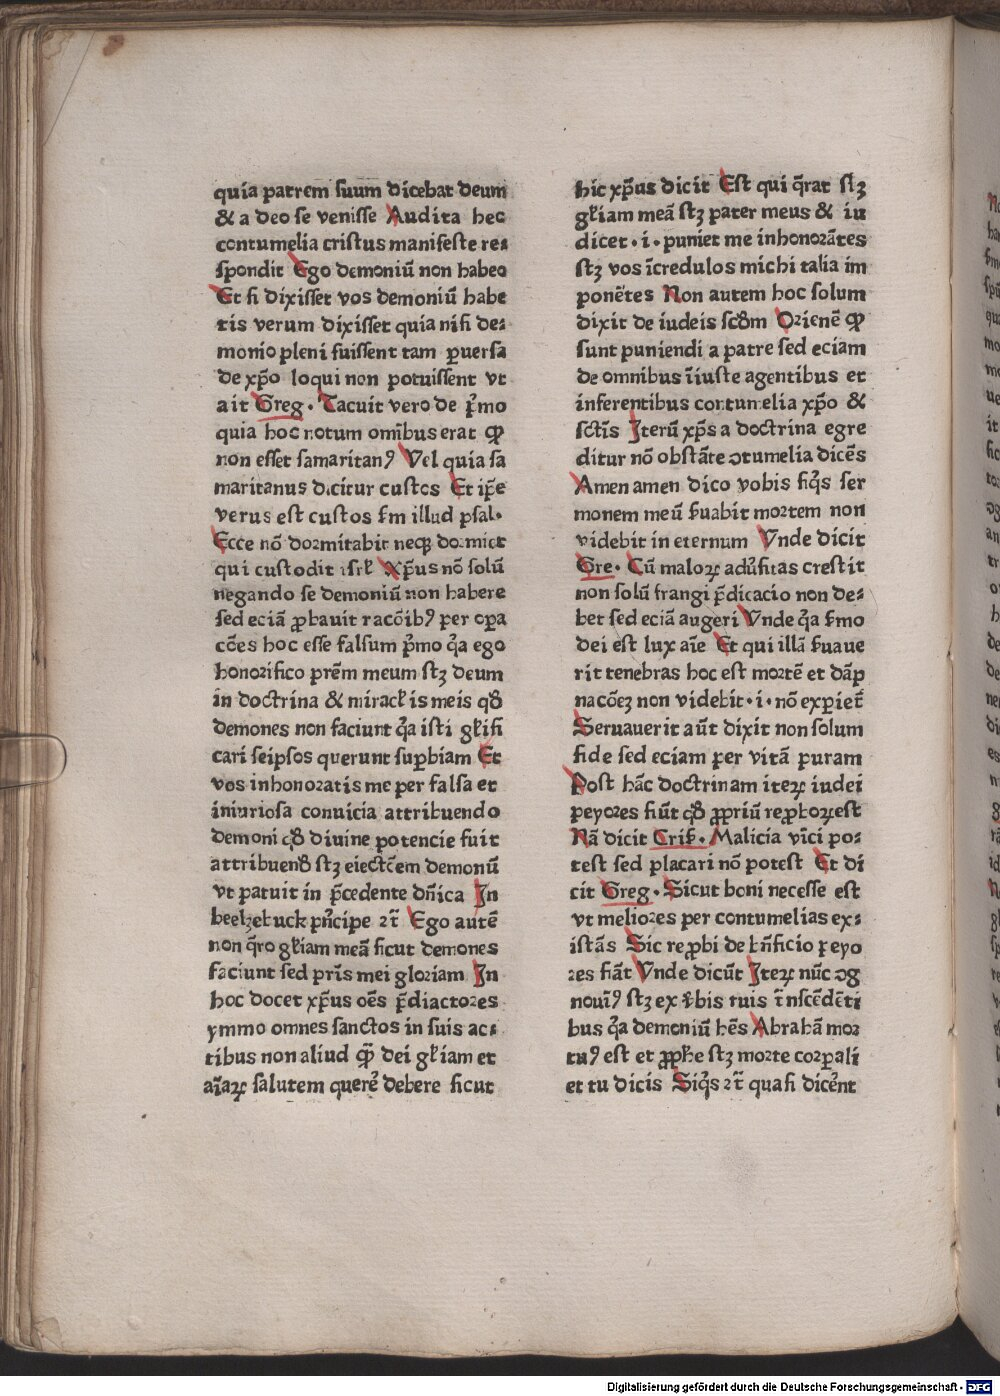 quia patrem suum dicebat deum
& a deo se venisse Audita hec
contumelia cristus manifeste re⸗
spondit Ego demoniū non habeo
Et si dixisset vos demoniū habe
tis verum dixisset quia nisi de⸗
monio pleni fuissent tam ꝑuersa
de xp̄o loqui non potuissent vt
ait Greg. Tacuit vero de p̄mo
quia hoc notum om̄ibus erat ꝙ
non esset samaritanꝰ Vel quia sa
maritanus dicitur custos Et ip̄e
verus est custos ſm illud psal.
Ecce nō dormitabit neqꝫ dormiet
qui custodit isrl̄ Xp̄us nō solū
negando se demoniū non habere
sed eciā ꝓbauit racōibꝰ per opera
cōes hoc esse falsum p̄mo q̄a ego
honorifico prēm meum stꝫ deum
in doctrina & miracl̄is meis qꝺ
demones non faciunt q̄a isti gl̄ifi
cari seipsos querunt suꝑbiam Et
vos inhonoratis me per falsa et
iniuriosa conuicia attribuendo
demoni qꝺ diuine potencie fuit
attribuendū stꝫ eiectōem demonū
vt patuit in p̄cedente dn̄ica In
beelzebuck pn̄cipe ⁊t̄ Ego autē
non q̄ro gl̄iam meā sicut demones
faciunt sed pr̄is mei gloriam In
hoc docet xp̄us oēs p̄diactores
ymmo omnes sanctos in suis ac⸗
tibus non aliud qͣꝫ dei gl̄iam et
aīaꝝ salutem querē debere sicut
hic xp̄us dicit Est qui q̄rat stꝫ
gl̄iam meā stꝫ pater meus & iu
dicet .i. puniet me inhonorātes
stꝫ vos īcredulos michi talia im
ponētes Non autem hoc solum
dixit de iudeis scꝺm Orienē ꝙ
sunt puniendi a patre sed eciam
de omnibus īiuste agentibus et
inferentibus contumelia xp̄o &
sctīs Iterū xp̄s a doctrina egre
ditur nō obstāte ꝯtumelia dicēs
Amen amen dico vobis siq̄s ser
monem meū ẜuabit mortem non
videbit in eternum Vnde dicit
Gre. Cū maloꝝ adūsitas crescit
non solū frangi p̄dicacio non de⸗
bet sed eciā augeri Vnde q̄a ẜmo
dei est lux aīe Et qui illā ẜuaue
rit tenebras hoc est mortē et dāp
nacōeꝫ non videbit .i. nō exꝑiet̄
Seruauerit aūt dixit non solum
fide sed eciam per vitā puram
Post hāc doctrinam iteꝝ iudei
peyores fiūt qꝺ ꝓpriū reꝓboꝝ est
Nā dicit Cris̄. Malicia vīci po⸗
test sed placari nō potest Et di
cit Greg. Sicut boni necesse est
vt meliores per contumelias ex⸗
istās Sic reꝓbi de bn̄ficio peyo
res fiāt Vnde dicūt Iteꝝ nūc ꝯg
nouīꝰ stꝫ ex ẜbis tuis īnscēdēti
bus q̄a demoniū hēs Abrahā mor
tuꝰ est et ꝓphe stꝫ morte corꝑali
et tu dicis Siq̄s ⁊t̄ quasi dicēnt
Digitalisierung gefördert durch die Deutsche Forschungsgemeinschaft - DFG